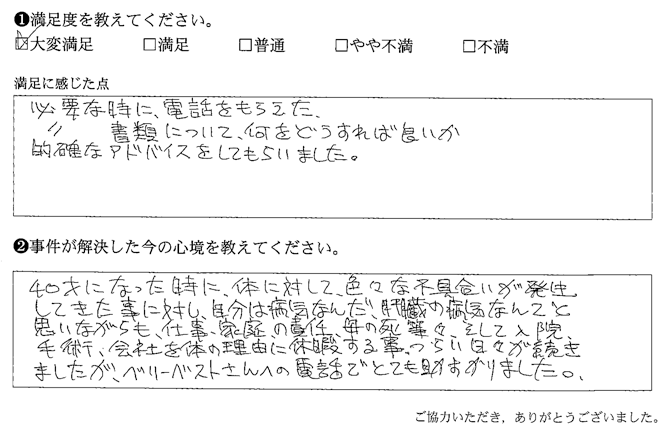 ❶満足度を教えてください。
☑大変満足 □満足 □普通 □やや不満 □不満
満足に感じた点
必要な時に、電話をもらえた、
〃 書類について、何をどうすれば良いか
的確なアドバイスをしてもらいました。
❷事件が解決した今の心境を教えてください。
40才になった時に、体に対して、色々な不具合いが発生
してきた事に対し、自分は病気なんだ、肝臓の病気なんてと
思いながらも、仕事、家庭、の責任、母の死等々、そして入院、
手術、会社を体の理由に休暇する事、つらい日々が続き
ましたが、ベリーベストさんへの電話でとても助すかりました。
ご協力いただき，ありがとうございました。